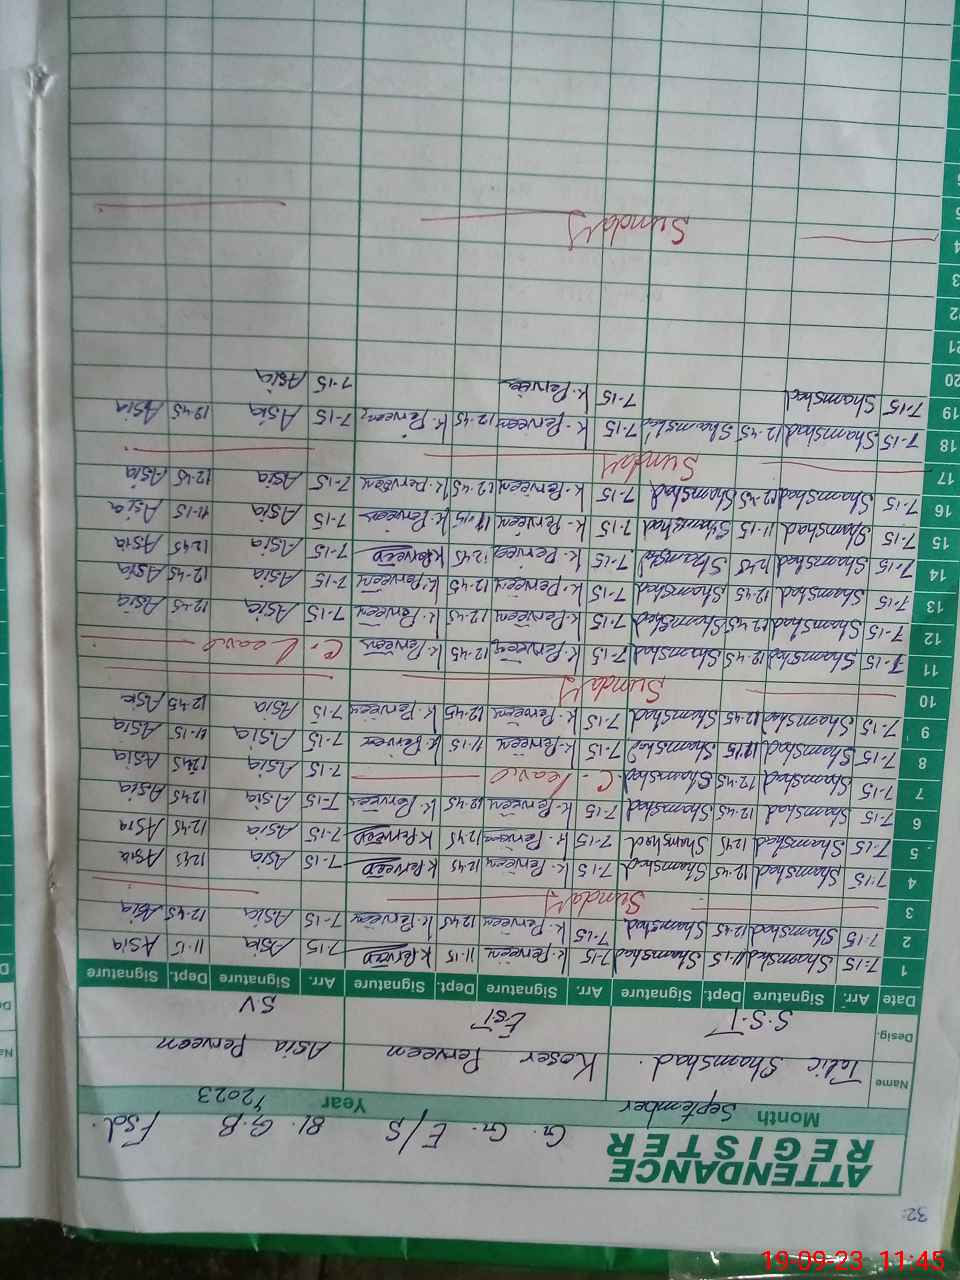 32
ATTENDANCE REGISTER
G. G. E/S 81. G.B Fsd.
Month September Year 2023
Name Shamshad. Koser Perveen Asia Perveen
Desig. S.S.T EST SV
Date Arr. Signature Dept. Signature Arr. Signature Dept. Signature Arr. Signature Dept. Signature
1 7:15 Shamshad 11-15 Shamshad 7-15 K. Perveen 11-15 K Perveen 7-15 Asia 11-15 Asia
2 7-15 Shamshad 12-45 Shamshad 7-15 K. Perveen 12-45 K. Perveen 7-15 Asia 12-45 Asia
3 Sunday
4 7-15 Shamshad 12-45 Shamshad 7-15 K. Perveen 12-45 K Perveen 7-15 Asia 12-45 Asia
5 7-15 Shamshad 12-45 Shamshad 7-15 K. Perveen 12-45 K Perveen 7-15 Asia 12-45 Asia
6 7-15 Shamshad 12-45 Shamshad 7-15 K. Perveen 12-45 K. Perveen 7-15 Asia 12-45 Asia
7 7-15 Shamshad 12-45 Shamshad C. Leave 7-15 Asia 12-45 Asia
8 7-15 Shamshad 11-15 Shamshad 7-15 K. Perveen 11-15 K. Perveen 7-15 Asia 11-15 Asia
9 7-15 Shamshad 12-45 Shamshad 7-15 K. Perveen 12-45 K. Perveen 7-15 Asia 12-45 Asia
10 Sunday
11 7-15 Shamshad 12-45 Shamshad 7-15 K. Perveen 12-45 K. Perveen C. Leave
12 7-15 Shamshad 12-45 Shamshad 7-15 K. Perveen 12-45 K. Perveen 7-15 Asia 12-45 Asia
13 7-15 Shamshad 12-45 Shamshad 7-15 K. Perveen 12-45 K. Perveen 7-15 Asia 12-45 Asia
14 7-15 Shamshad 12-45 Shamshad 7-15 K. Perveen 12-45 K Perveen 7-15 Asia 12-45 Asia
15 7-15 Shamshad 11-15 Shamshad 7-15 K. Perveen 11-15 K. Perveen 7-15 Asia 11-15 Asia
16 7-15 Shamshad 12-45 Shamshad 7-15 K. Perveen 12-45 K. Perveen 7-15 Asia 12-45 Asia
17 Sunday
18 7-15 Shamshad 12-45 Shamshad 7-15 K. Perveen 12-45 K. Perveen 7-15 Asia 12-45 Asia
19 7-15 Shamshad 7-15 K. Perveen 7-15 Asia
20
21
22
Sunday
19-09-23 11:45